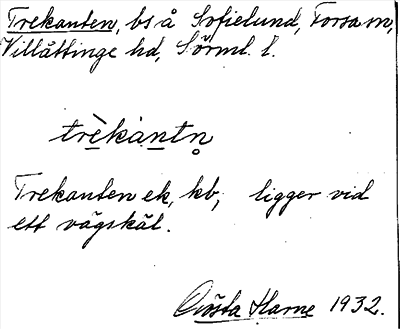 Trekanten, bs å Sofielund, Forsa sn,
Villåttinge hd, Sörml. l.
trèkàntn̥
Trekanten ek, kb, ligger vid
ett vägskäl.
Gösta Harne 1932.